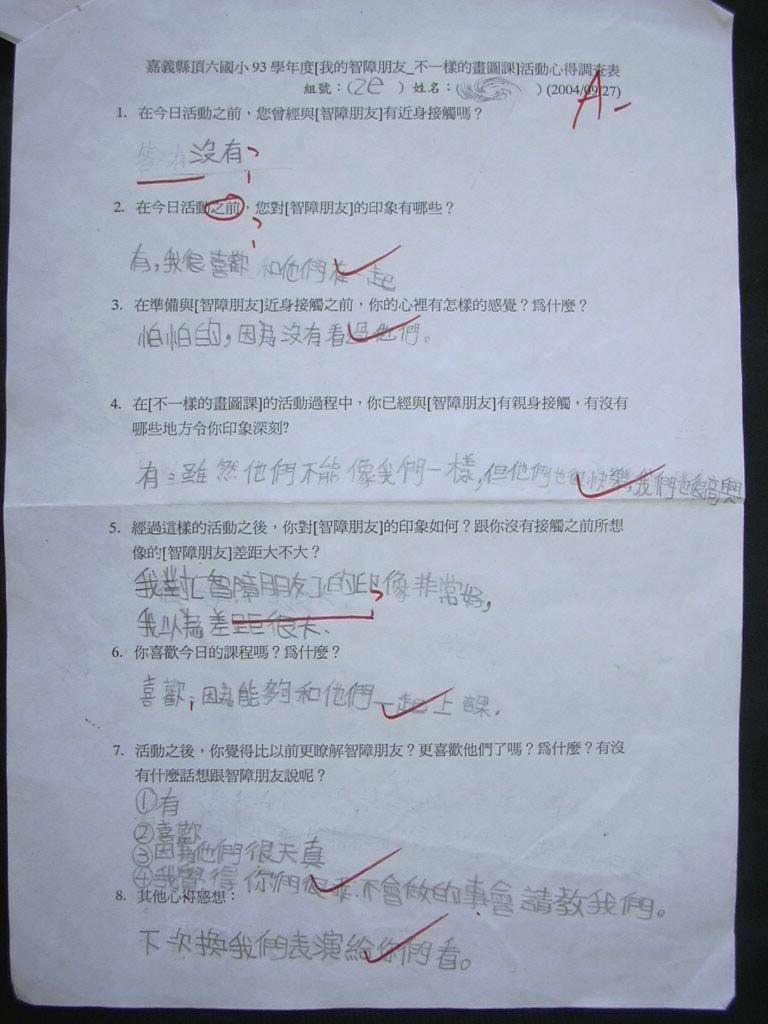 嘉義縣頂六國小93學年度[我的智障朋友_不一樣的畫圖課]活動心得調查表
組號：(2e ) 姓名：( ) (2004/09/27)
A-
1. 在今日活動之前，您曾經與[智障朋友]有近身接觸嗎？
沒有?
2. 在今日活動之前，您對[智障朋友]的印象有哪些？
?
有,我很喜歡和他們在一起
3. 在準備與[智障朋友]近身接觸之前，你的心裡有怎樣的感覺？為什麼？
怕怕的,因為沒有看過他們。
4. 在[不一樣的畫圖課]的活動過程中，你已經與[智障朋友]有親身接觸，有沒有
哪些地方令你印象深刻?
有：雖然他們不能像我們一樣,但他們也很快樂,我們也很高興
5. 經過這樣的活動之後，你對[智障朋友]的印象如何？跟你沒有接觸之前所想
像的[智障朋友]差距大不大？
我對[智障朋友]的印像非常好,
我以為差距很大.
6. 你喜歡今日的課程嗎？為什麼？
喜歡,因為能夠和他們一起上課.
7. 活動之後，你覺得比以前更瞭解智障朋友？更喜歡他們了嗎？為什麼？有沒
有什麼話想跟智障朋友說呢？
①有
②喜歡
③因為他們很天真
④我覺得你們很乖.不會做的事會請教我們。
8. 其他心得感想：
下次換我們表演給你們看。